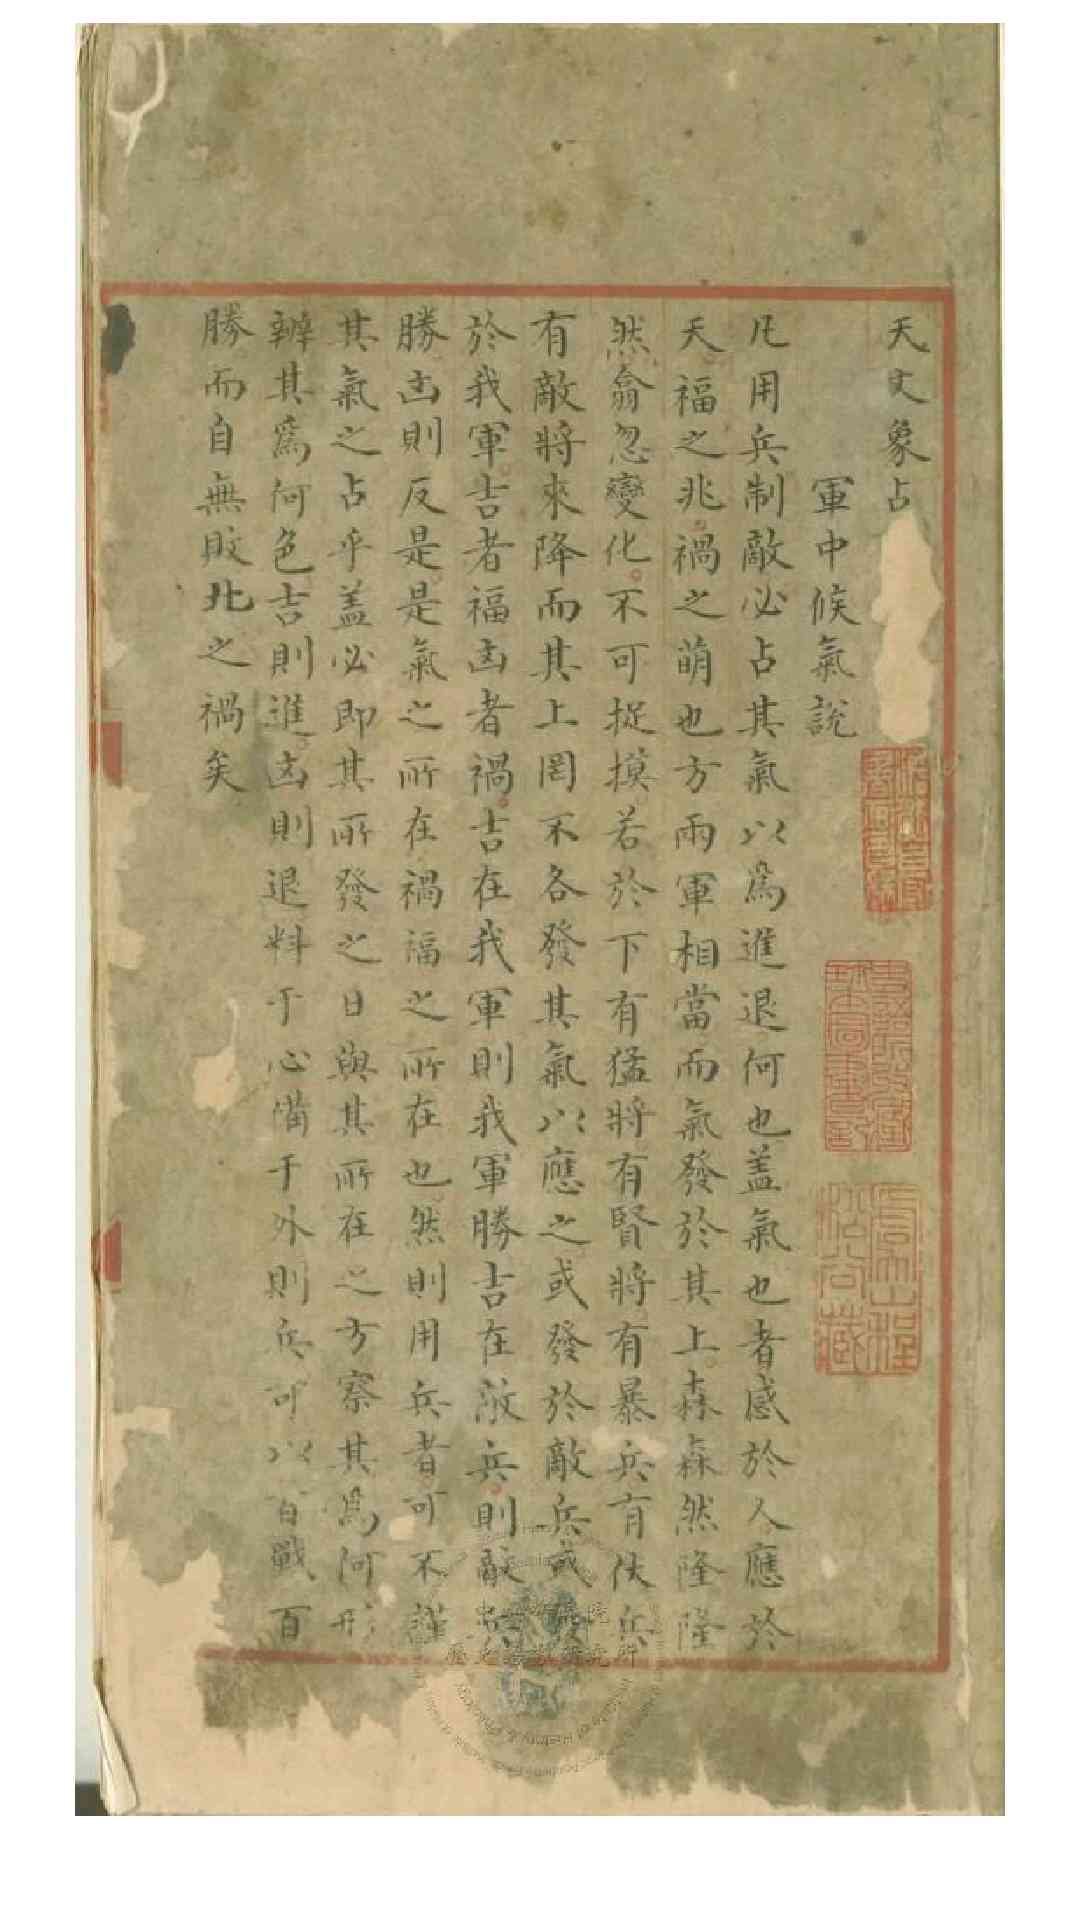 天文象占
軍中候氣說
凡用兵制敵必占其氣以爲進退何也盖氣也者感於人應於
天福之兆禍之萌也方兩軍相當而氣發於其上森森然隆隆
然翕忽變化不可捉摸若於下有猛將有賢將有暴兵有伏兵
有敵將來降而其上罔不各發其氣以應之或發於敵兵或發
於我軍吉者福凶者禍吉在我軍則我軍勝吉在敵兵則敵兵
勝凶則反是是氣之所在禍福之所在也然則用兵者可不謹
其氣之占乎盖必即其所發之日與其所在之方察其爲何形
辨其爲何色吉則進凶則退料于心備于外則兵可以百戰百
勝而自無敗北之禍矣
歷史語言研究所